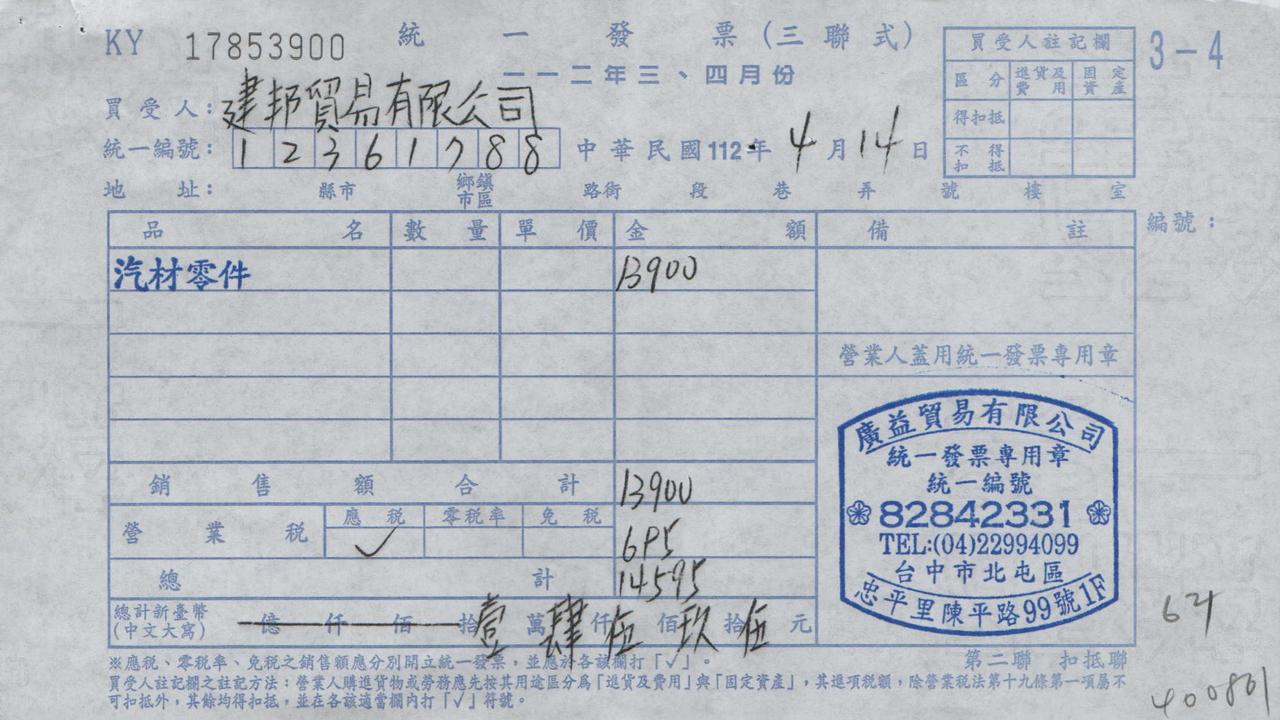 KY 17853900 統一發票(三聯式) 3-4
一一二年三、四月份
買受人:建邦貿易有限公司
統一編號:12361788 中華民國112年4月14日
地址: 縣市 鄉鎮市區 路街 段 巷 弄 號 樓 室
買受人註記欄
區分 進貨及費用 固定資產
得扣抵
不得扣抵
編號:
品名 數量 單價 金額 備註
汽材零件 13900
營業人蓋用統一發票專用章
銷售額合計 13900
營業稅 應稅 零稅率 免稅
✓ 695
總計 14595
總計新臺幣(中文大寫) 億仟佰拾壹萬肆仟伍佰玖拾伍元
廣益貿易有限公司
統一發票專用章
統一編號
82842331
TEL:(04)22994099
台中市北屯區
忠平里陳平路99號1F
※應稅、零稅率、免稅之銷售額應分別開立統一發票,並應於各該欄打「✓」。
第二聯 扣抵聯
買受人註記欄之註記方法:營業人購進貨物或勞務應先按其用途區分為「進貨及費用」與「固定資產」,其進項稅額,除營業稅法第十九條第一項屬不
可扣抵外,其餘均得扣抵,並在各該適當欄內打「✓」符號。
400861